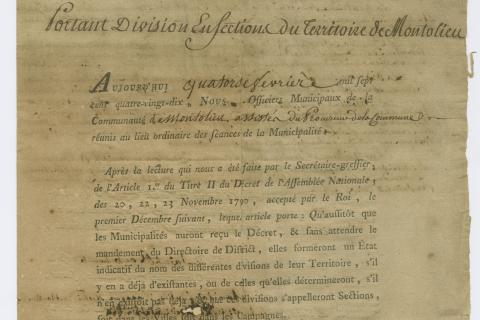 Portant Division En Sections du Territoire de Montolieu
AUJOURD'HUI quatorse fevrier mil sept
cent quatre-vingt-dix, NOUS Officiers Municipaux de la
Communauté de Montolieu, assistés du Procureur de la Commune
réunis au lieu ordinaire des séances de la Municipalité;
Après la lecture qui nous a été faite par le Secrétaire-greffier,
de l'Article 1.er du Titre II du Décret de l'Assemblée Nationale,
des 20, 22, 23 Novembre 1790, accepté par le Roi, le
premier Décembre suivant, lequel article porte: Qu'aussitôt que
les Municipalités auront reçu le Décret, & sans attendre le
mandement du Directoire de District, elles formeront un État
indicatif du nom des différentes divisions de leur Territoire, s'il
y en a déja d'existantes, ou de celles qu'elles détermineront, s'il
n'en existoit pas déja que ces divisions s'appelleront Sections,
soit dans les Villes soit dans les Campagnes.